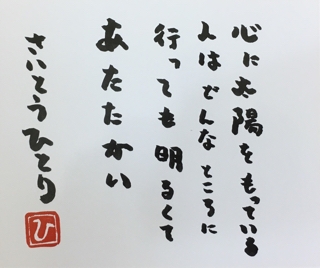 心に太陽をもっている
人はどんなところに
行っても明るくて
あたたかい
さいとうひとり
ひ